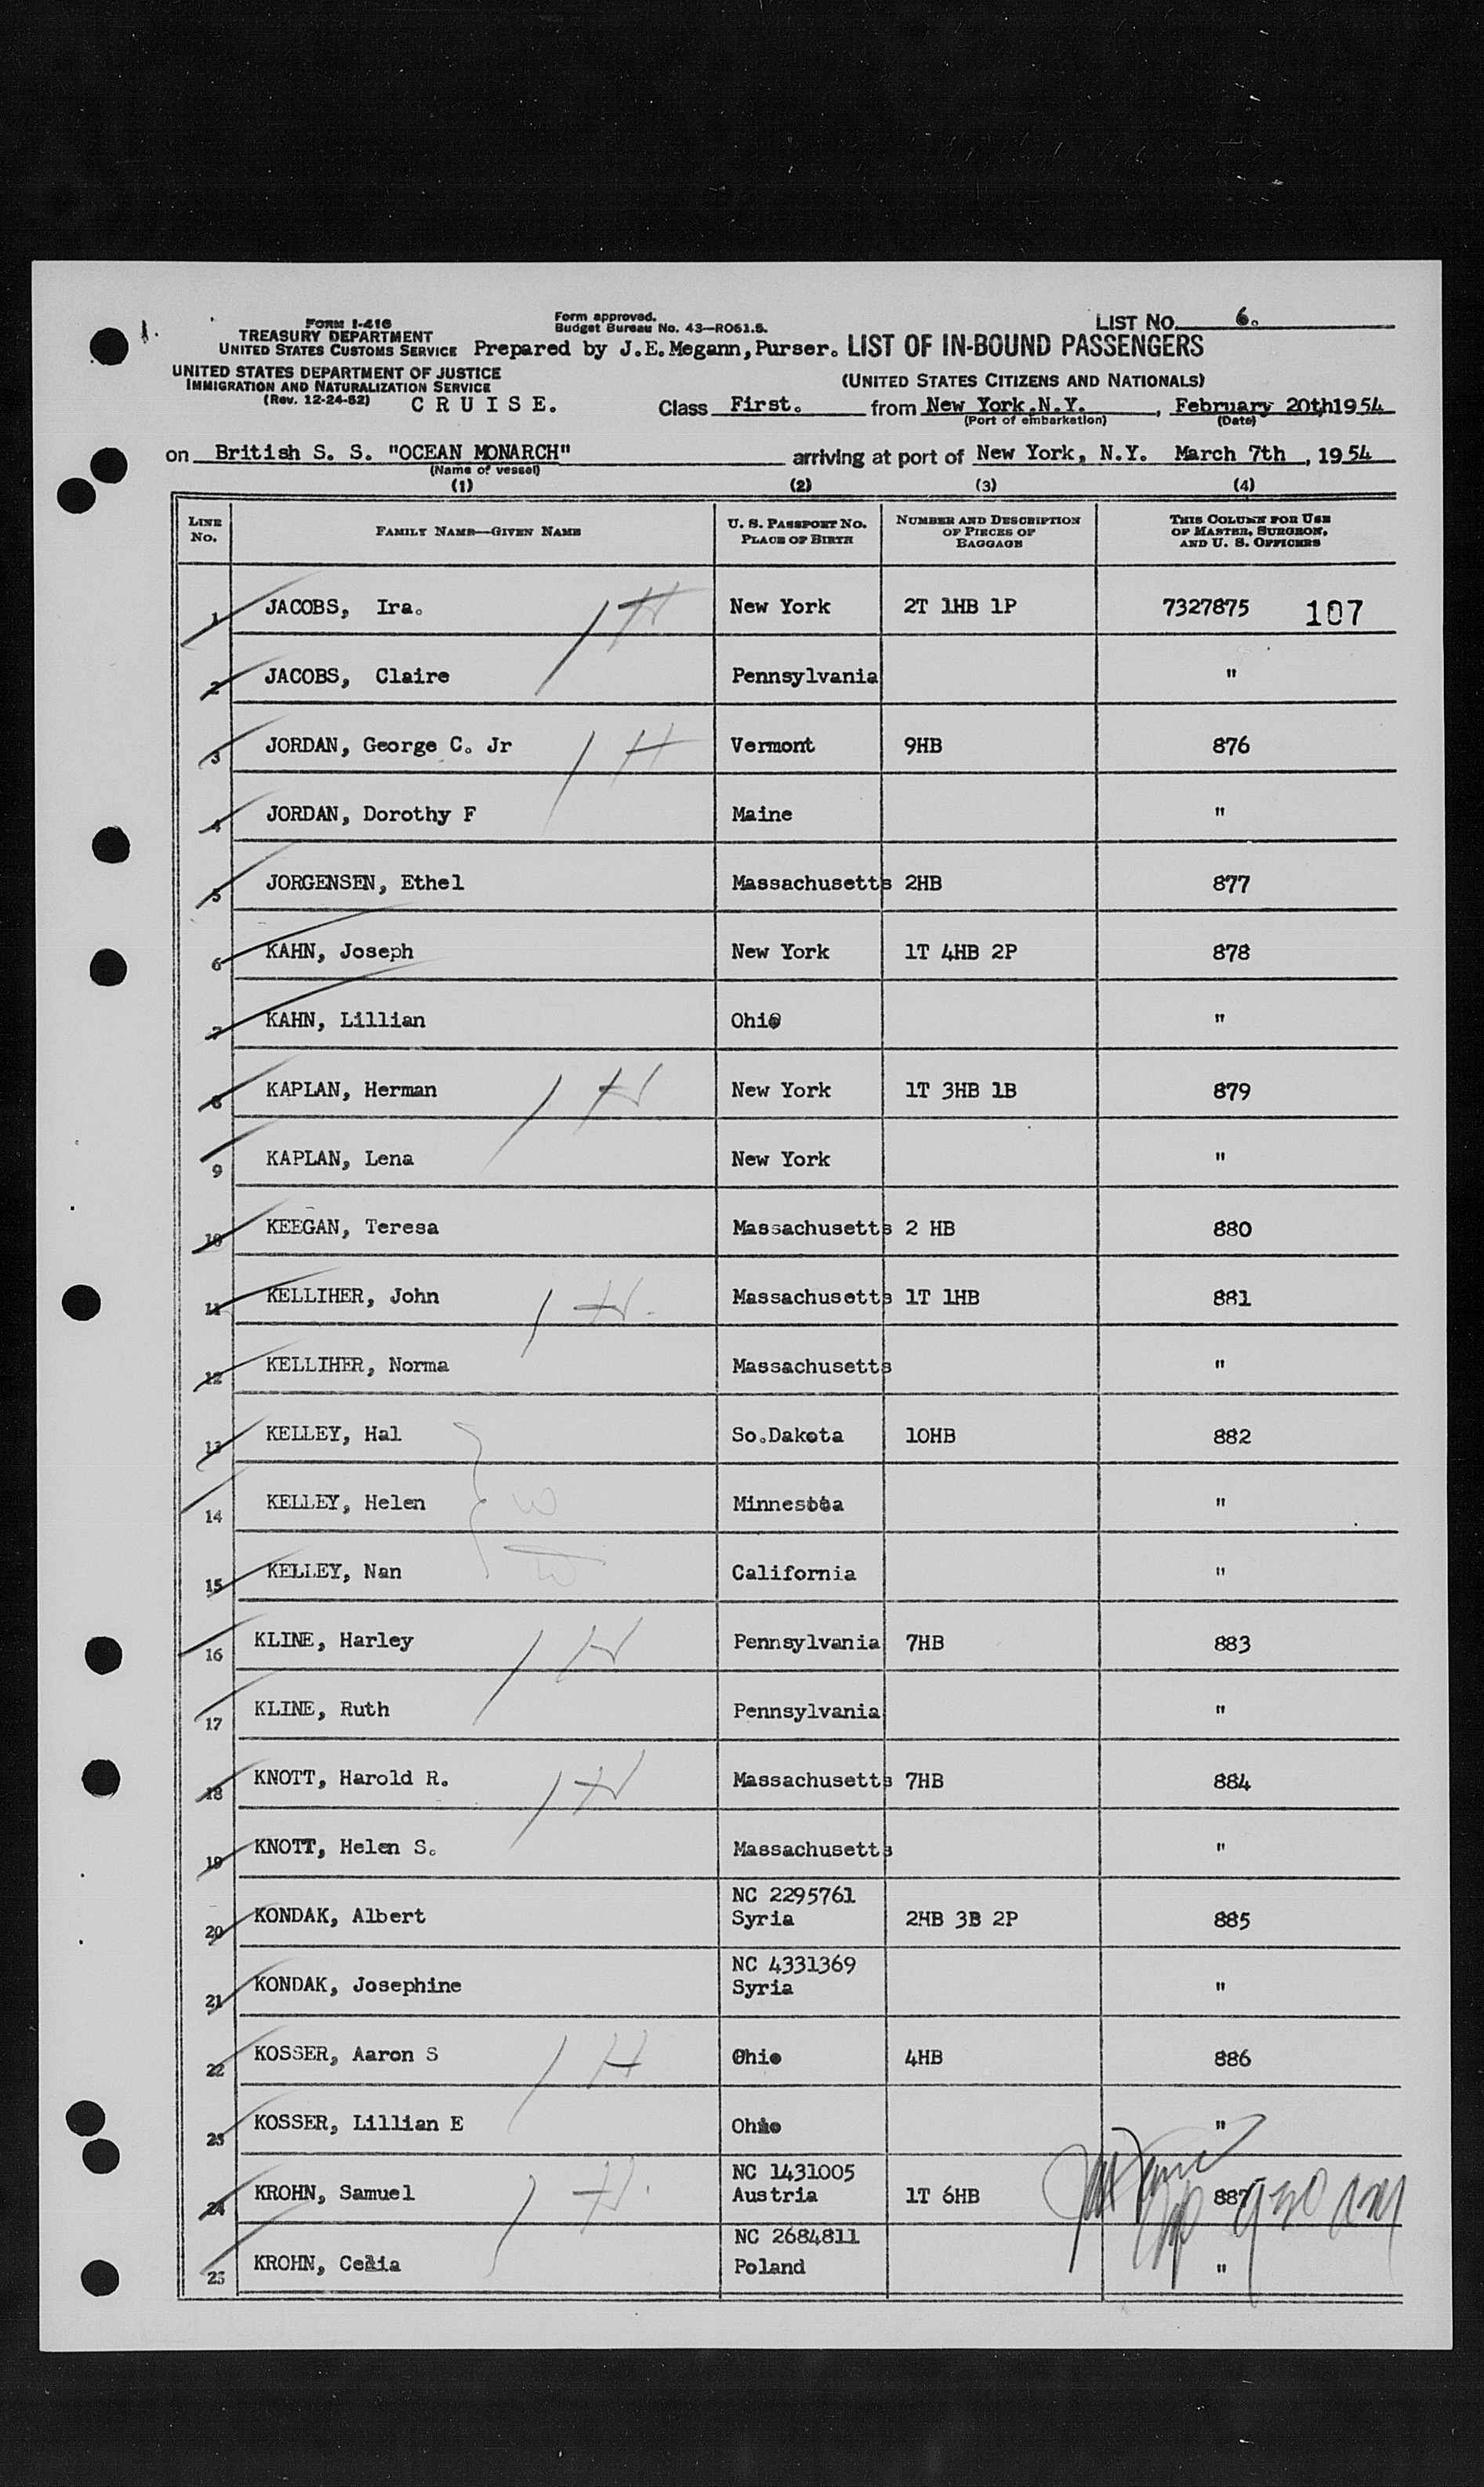 FORM I-416
TREASURY DEPARTMENT
UNITED STATES CUSTOMS SERVICE
UNITED STATES DEPARTMENT OF JUSTICE
IMMIGRATION AND NATURALIZATION SERVICE
(Rev. 12-24-52)
C R U I S E.
Form approved.
Budget Bureau No. 43—RO61.5.
Prepared by J.E.Megann,Purser.
LIST NO. 6.
LIST OF IN-BOUND PASSENGERS
(UNITED STATES CITIZENS AND NATIONALS)
Class First. from New York.N.Y. , February 20th1954
(Port of embarkation) (Date)
on British S. S. "OCEAN MONARCH" arriving at port of New York, N.Y. March 7th , 1954
(Name of vessel)
(1) (2) (3) (4)
LINE No. FAMILY NAME—GIVEN NAME U. S. PASSPORT NO. PLACE OF BIRTH NUMBER AND DESCRIPTION OF PIECES OF BAGGAGE THIS COLUMN FOR USE OF MASTER, SURGEON, AND U. S. OFFICERS
1 JACOBS, Ira. 1 H New York 2T 1HB 1P 7327875 107
2 JACOBS, Claire Pennsylvania "
3 JORDAN, George C. Jr 1 H Vermont 9HB 876
4 JORDAN, Dorothy F Maine "
5 JORGENSEN, Ethel Massachusetts 2HB 877
6 KAHN, Joseph New York 1T 4HB 2P 878
7 KAHN, Lillian Ohio "
8 KAPLAN, Herman 1 H New York 1T 3HB 1B 879
9 KAPLAN, Lena New York "
10 KEEGAN, Teresa Massachusetts 2 HB 880
11 KELLIHER, John 1 H. Massachusetts 1T 1HB 881
12 KELLIHER, Norma Massachusetts "
13 KELLEY, Hal So.Dakota 10HB 882
14 KELLEY, Helen Minnesota "
15 KELLEY, Nan California "
16 KLINE, Harley 1 H Pennsylvania 7HB 883
17 KLINE, Ruth Pennsylvania "
18 KNOTT, Harold R. 1 H Massachusetts 7HB 884
19 KNOTT, Helen S. Massachusetts "
20 KONDAK, Albert NC 2295761 Syria 2HB 3B 2P 885
21 KONDAK, Josephine NC 4331369 Syria "
22 KOSSER, Aaron S 1 H Ohio 4HB 886
23 KOSSER, Lillian E Ohio "
24 KROHN, Samuel 1 H. NC 1431005 Austria 1T 6HB 887
25 KROHN, Celia NC 2684811 Poland "